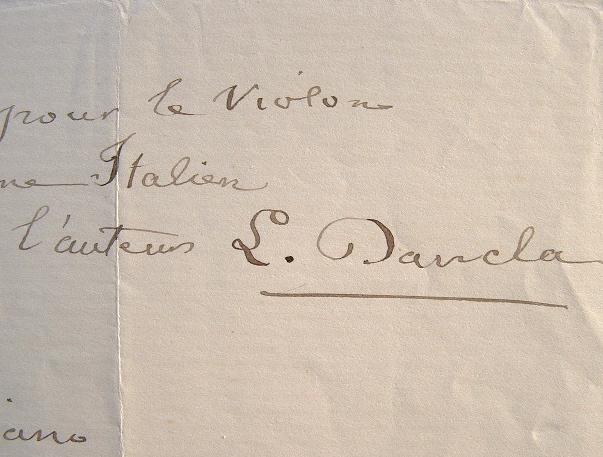 pour le Violon
ne Italien
l'auteur L. Dancla
iano